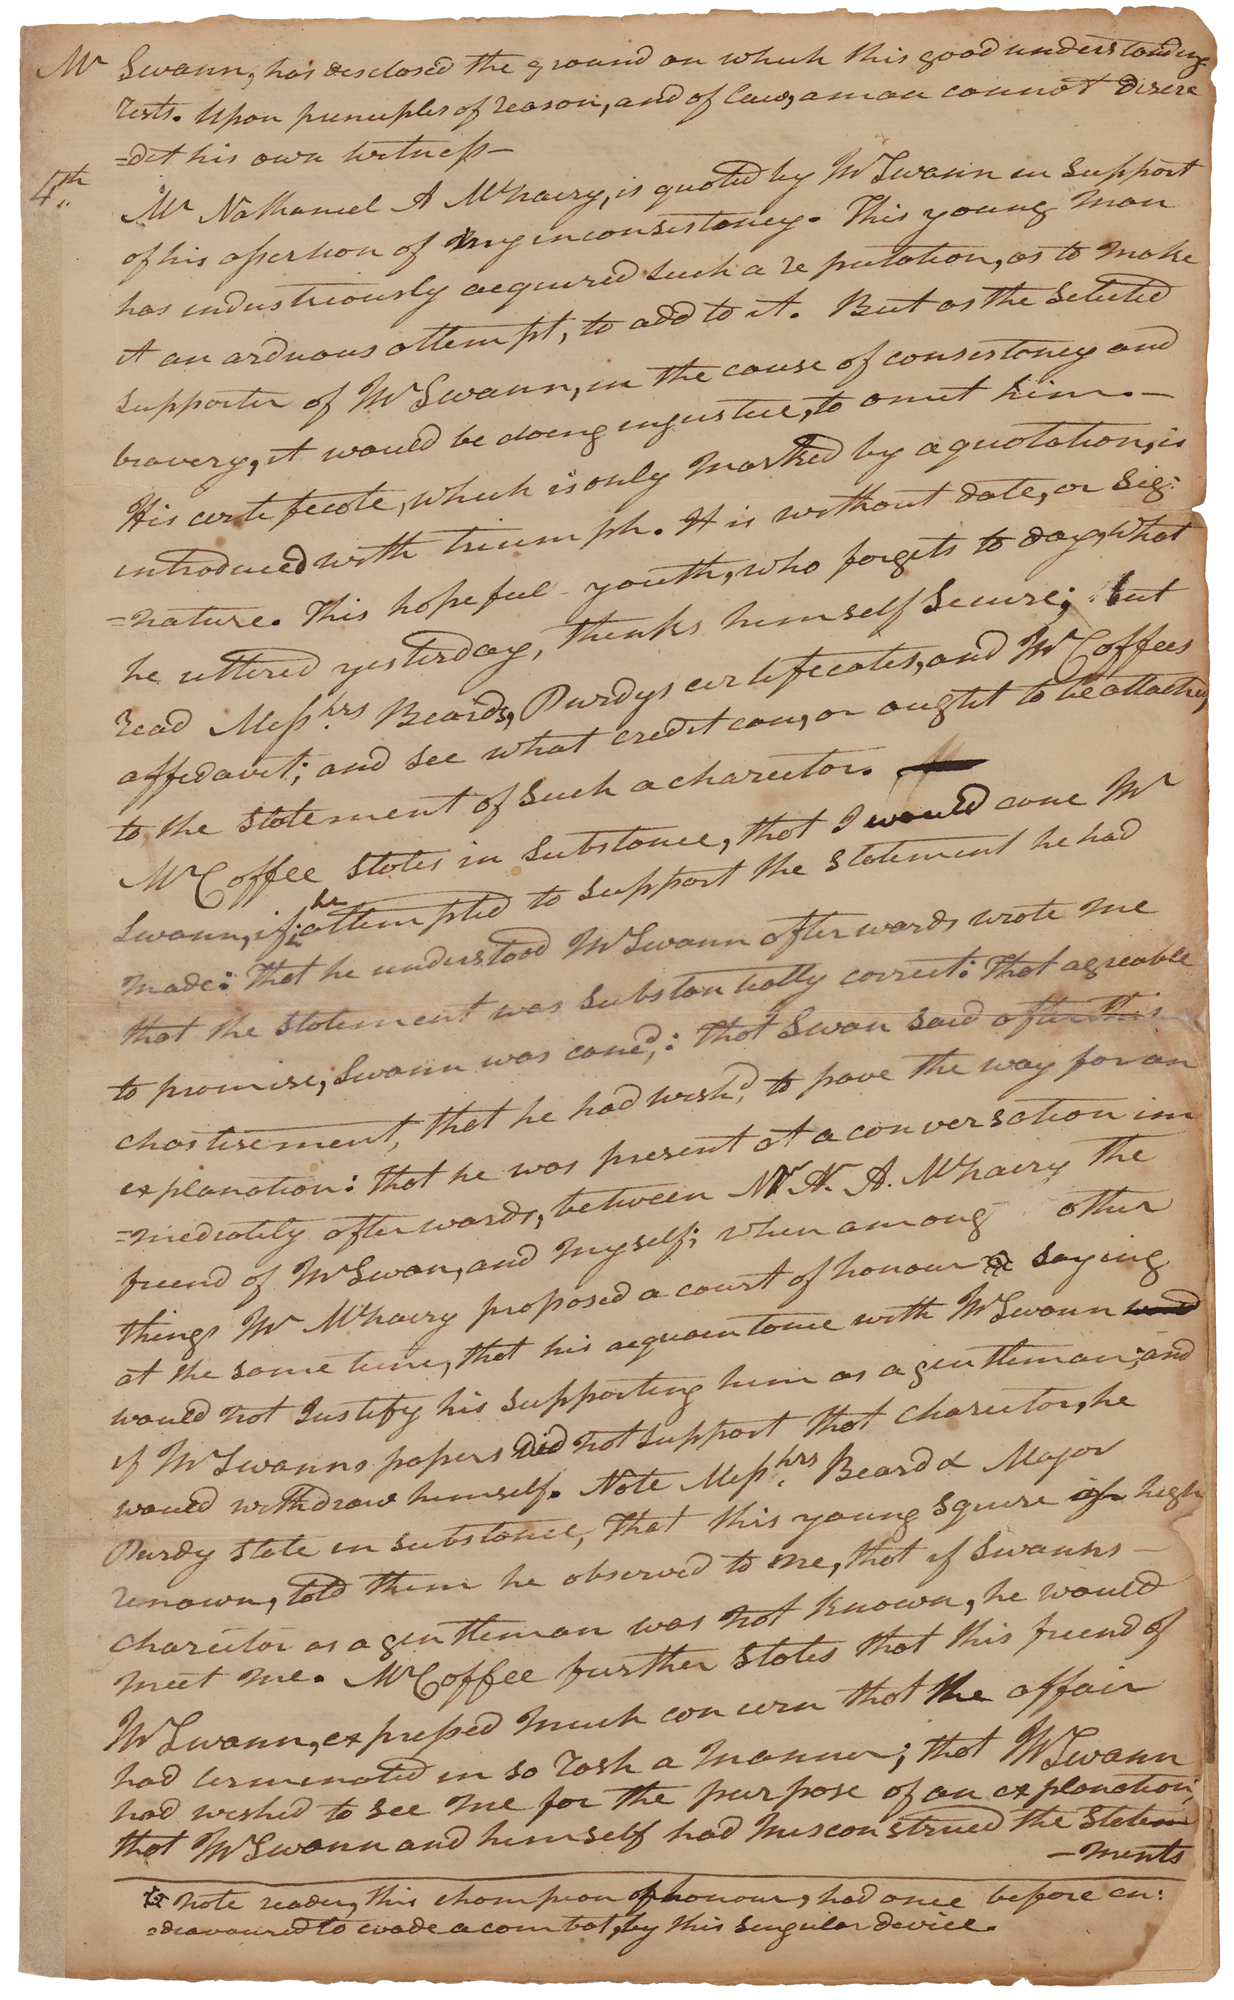 Mr Swann, has disclosed the ground on which this good understanding
rests. Upon principles of reason, and of law, a man cannot discre
=dit his own witness—
4th Mr Nathaniel A McNairy, is quoted by Mr Swann in support
of his assertion of my inconsistancy. This young man
has industriously acquired such a reputation, as to make
it an arduous attempt, to add to it. But as the selected
supporter of Mr Swann, in the cause of consistancy and
bravery, it would be doing injustice, to omit him.—
His certificate, which is only marked by a quotation, is
introduced with triumph. It is without date, or sig:
=nature. This hopeful youth, who forgets to day, what
he uttered yesterday, thinks himself secure; but
read Messhrs Beards, Purdys certificates, and Mr Coffees
affidavit; and see what credit can, or ought to be attached,
to the statement of such a charector.
Mr Coffee states in substance, that I would cane Mr
Swann, if he attempted to support the statement he had
made: That he understood Mr Swann afterwards wrote me
that the statement was substantially correct: That agreable
to promise, Swann was caned,: that Swan said after this
chastisement, that he had wish'd, to pave the way for an
explanation: that he was present at a conversation im
=mediately afterwards, between Mr N. A. McNairy the
friend of Mr Swan, and myself; when among other
things Mr McNairy proposed a court of honour saying
at the same time, that his acquaintance with Mr Swann
would not Justify his supporting him as a gentleman; and
if Mr Swanns papers did not support that charector, he
would withdraw himself. Note Messhrs Beard & Major
Purdy state in substance, that this young squire of high
renown, told them he observed to me, that if Swanns—
charector as a gentleman was not known, he would
meet me. Mr Coffee further states that this friend of
Mr Swann, expressed much concern that the affair
had terminated in so rash a manner; that Mr Swann
had wished to see me for the purpose of an explanation;
that Mr Swann and himself had misconstrued the state
—ments
note reader, this champion of honour, had once before en:
=deavoured to evade a combat, by this singular device.